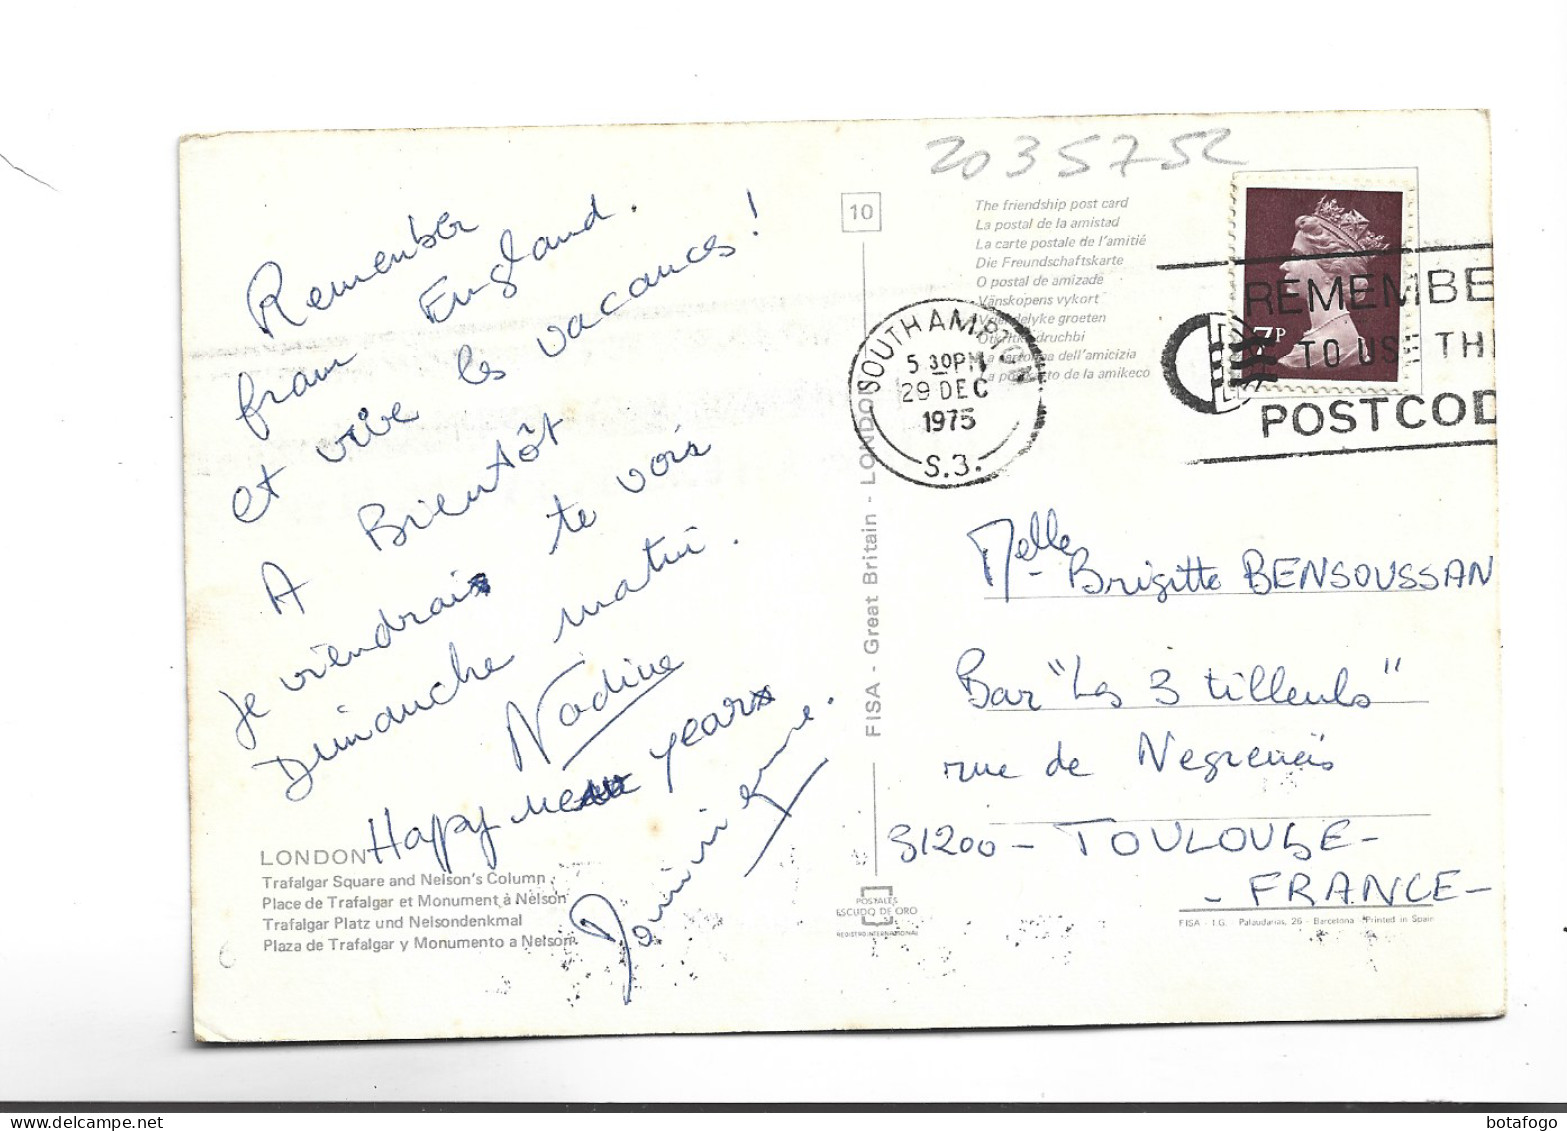 2035752
Remember
from England.
et vive les vacances !
A Bientôt
je viendrais te voir
Dimanche matin.
Nadine
Happy new years
Dominique.
LONDON
Trafalgar Square and Nelson's Column
Place de Trafalgar et Monument à Nelson
Trafalgar Platz und Nelsondenkmal
Plaza de Trafalgar y Monumento a Nelson
10
FISA - Great Britain - LONDON
The friendship post card
La postal de la amistad
La carte postale de l'amitié
Die Freundschaftskarte
O postal de amizade
Vänskopens vykort
Vriendelyke groeten
La cartolina dell'amicizia
La poŝtkarto de la amikeco
SOUTHAMPTON
5 30PM
29 DEC
1975
S.3.
7P
REMEMBE
TO USE TH
POSTCOD
Melle Brigitte BENSOUSSAN
Bar "Les 3 tilleuls"
rue de Negreneïs
31200 - TOULOUSE -
- FRANCE -
POSTALES
ESCUDO DE ORO
REGISTRO INTERNATIONAL
FISA - I.G. Palaudarias, 26 - Barcelona Printed in Spain
botafogo